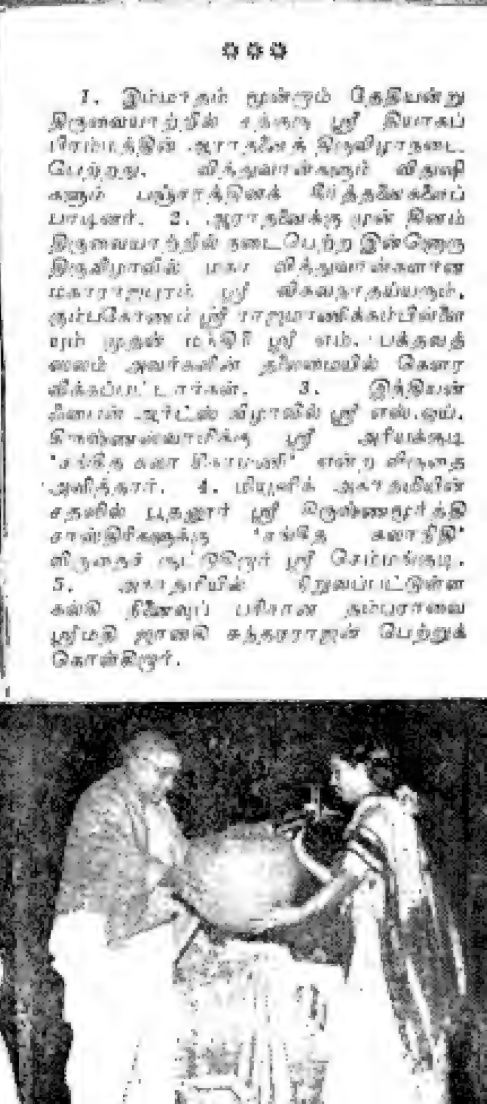 1. இம்மாதம் மூன்றாம் தேதியன்று
திருவையாற்றில் சத்குரு ஸ்ரீ தியாகப்
பிரம்மத்தின் ஆராதனைத் திருவிழா நடை
பெற்றது. வித்துவான்களும் விதுஷி
களும் பஞ்சரத்தினக் கீர்த்தனைகளைப்
பாடினர். 2. ஆராதனைக்கு முன் தினம்
திருவையாற்றில் நடைபெற்ற இன்னொரு
திருவிழாவில் மகா வித்துவான்களான
மகாராஜபுரம் ஸ்ரீ விசுவநாதய்யரும்,
கும்பகோணம் ஸ்ரீ ராஜமாணிக்கம்பிள்ளை
யும் முதன் மந்திரி ஸ்ரீ எம். பக்தவத்
ஸலம் அவர்களின் தலைமையில் கௌர
விக்கப்பட்டார்கள். 3. இந்தியன்
ஃபைன் ஆர்ட்ஸ் விழாவில் ஸ்ரீ எஸ்.ஒய்.
கிருஷ்ணஸ்வாமிக்கு ஸ்ரீ அரியக்குடி
'சங்கீத கலா சிகாமணி' என்ற விருதை
அளித்தார். 4. மியூஸிக் அகாதமியின்
சதஸில் புதனூர் ஸ்ரீ கிருஷ்ணமூர்த்தி
சாஸ்திரிகளுக்கு 'சங்கீத கலாநிதி'
விருதைச் சூட்டுகிறார் ஸ்ரீ செம்மங்குடி.
5. அகாதமியில் நிறுவப்பட்டுள்ள
கல்கி நினைவுப் பரிசான தம்புராவை
ஸ்ரீமதி ஜானகி சுந்தரராஜன் பெற்றுக்
கொள்கிறார்.